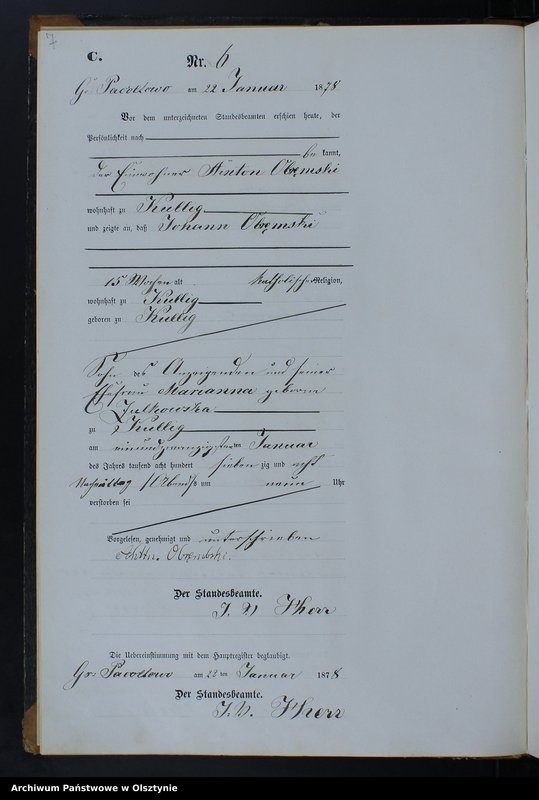 C.
Nr. 6
Gr. Pacoltowo am 22 Januar 1878
Vor dem unterzeichneten Standesbeamten erschien heute, der
Persönlichkeit nach
be kannt,
der Einwohner Anton Obremski
wohnhaft zu Kullig
und zeigte an, daß Johann Obremski
15 Wochen alt katholischer Religion,
wohnhaft zu Kullig
geboren zu Kullig
Sohn des Anzeigenden und seiner
Ehefrau Marianna geborne
Julkowska
zu Kullig
am einundzwanzigsten Januar
des Jahres tausend acht hundert sieben zig und acht
Nachmittag /Abends/ um neun Uhr
verstorben sei
Vorgelesen, genehmigt und unterschrieben
Obremski.
Der Standesbeamte.
J. V.
Die Uebereinstimmung mit dem Hauptregister beglaubigt.
Gr. Pacoltowo am 22 ten Januar 1878
Der Standesbeamte.
J. V.
Archiwum Państwowe w Olsztynie